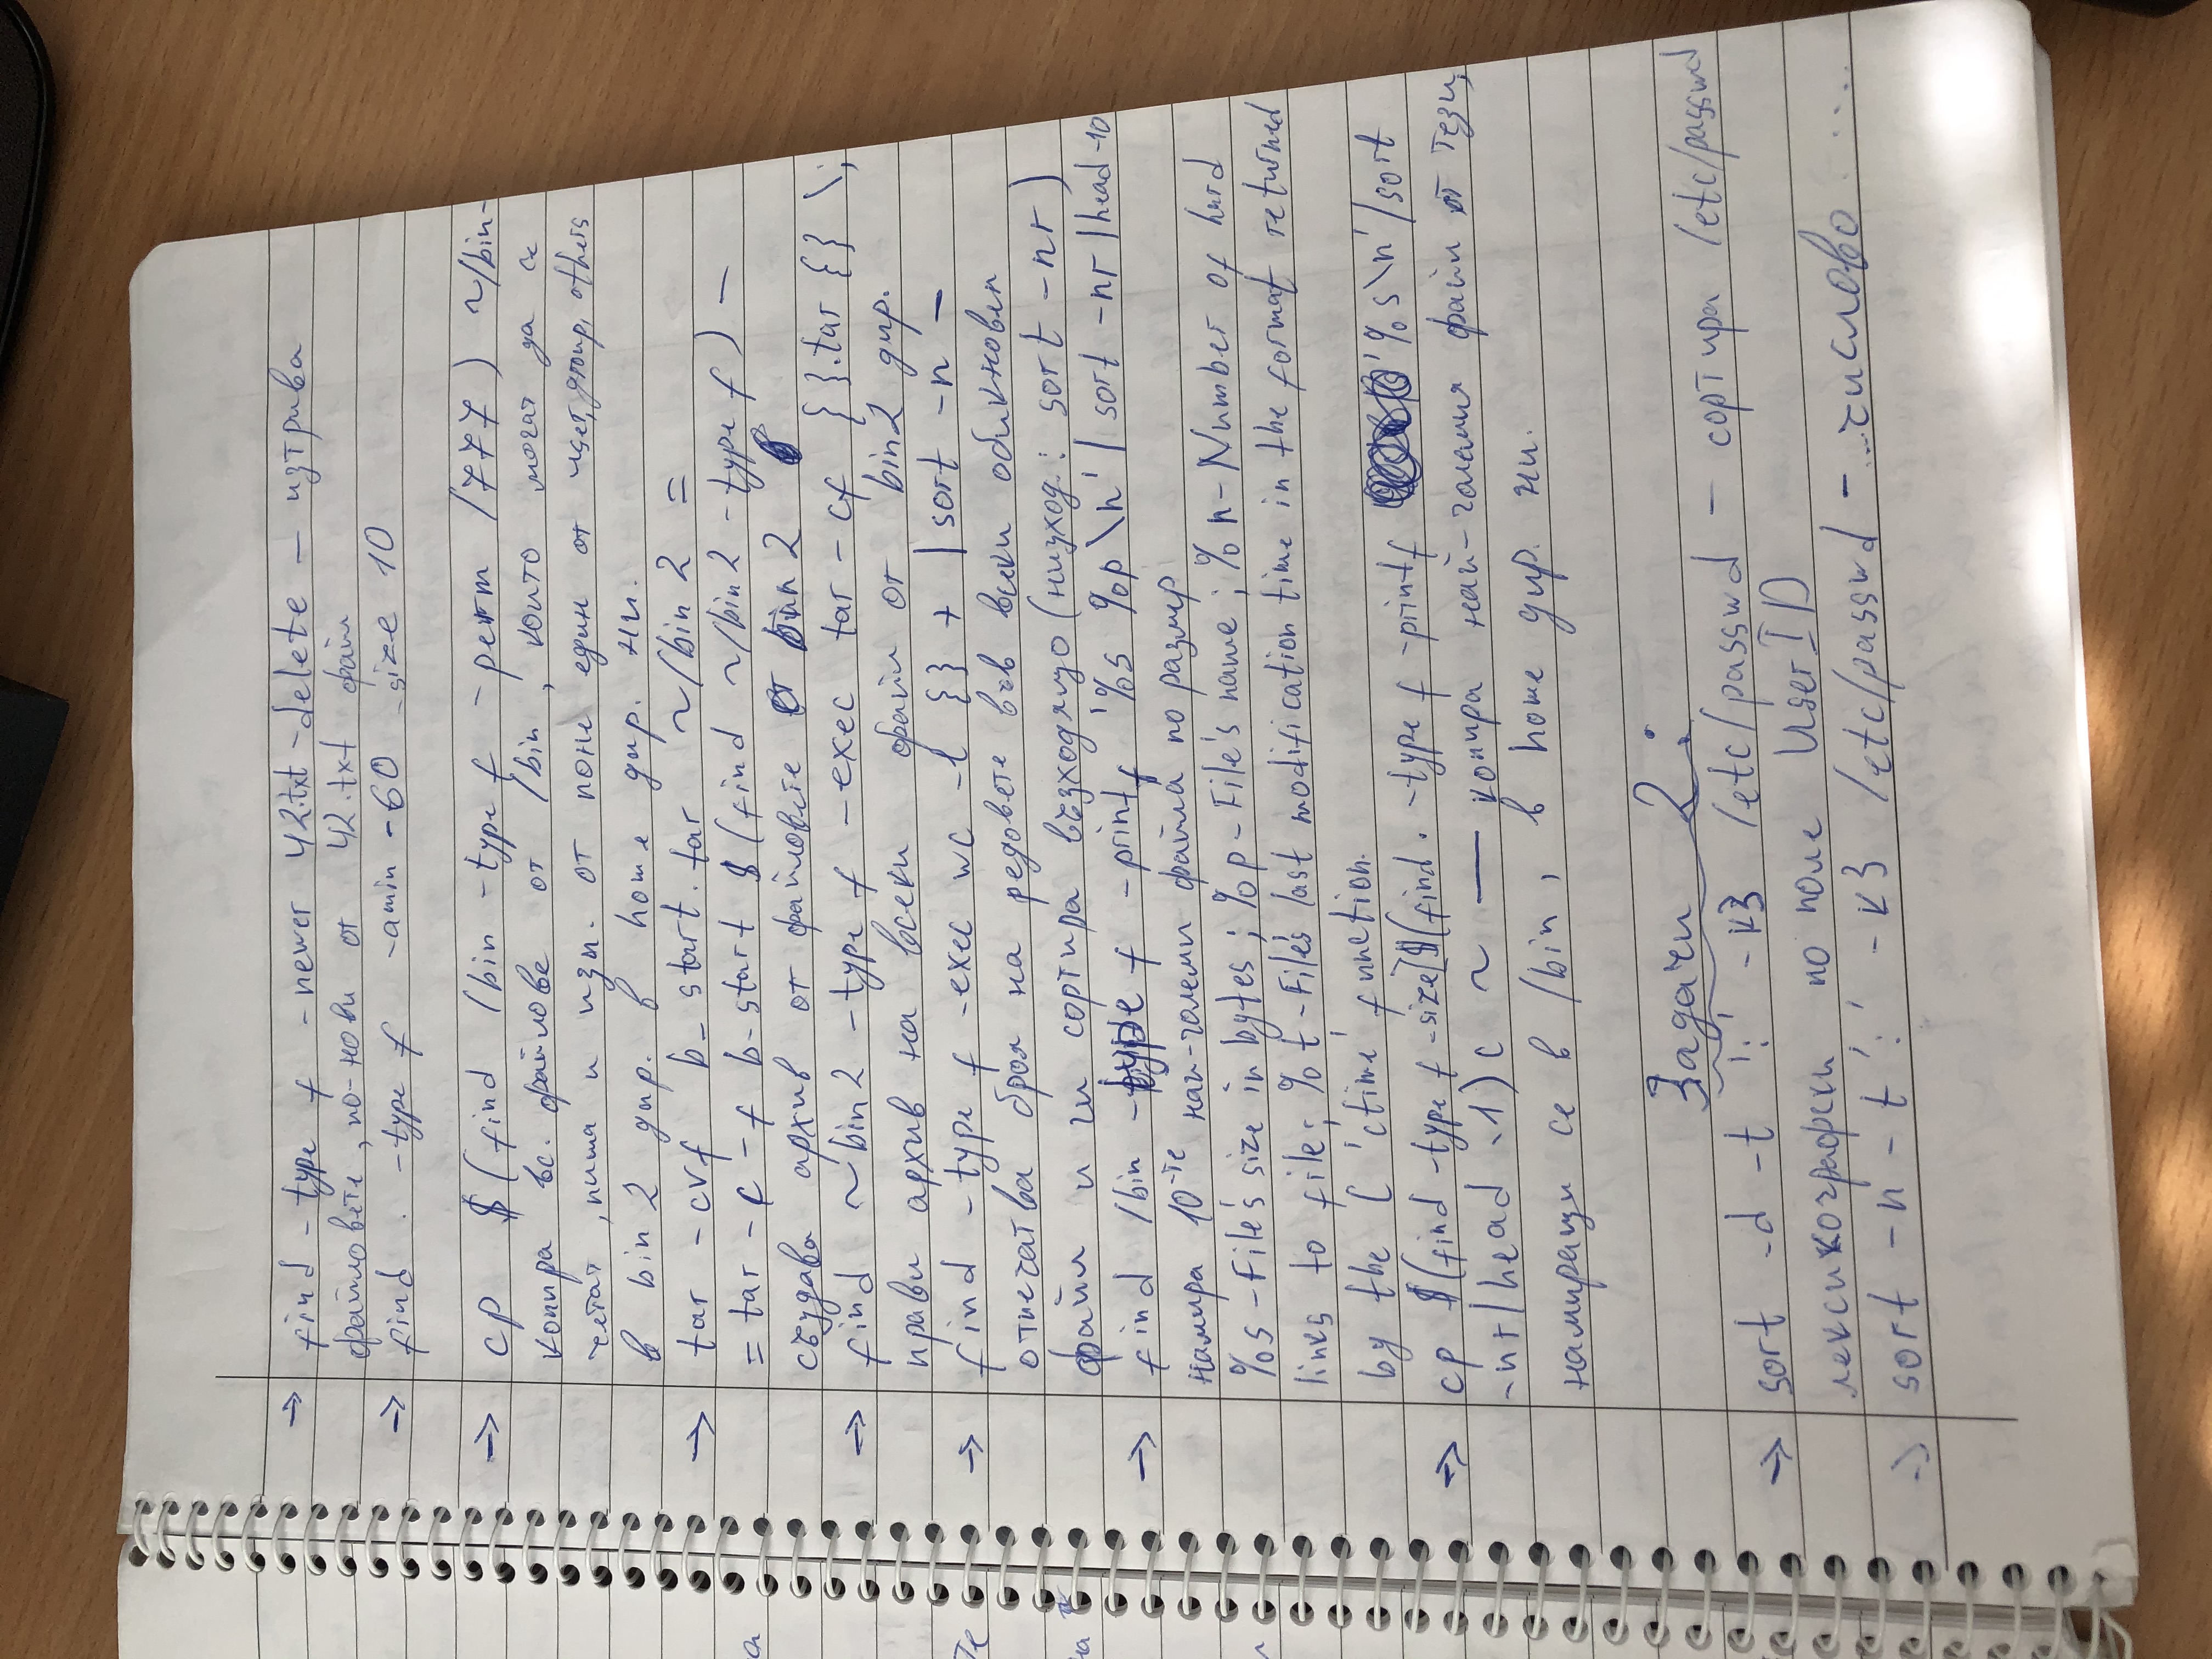 → find -type f -newer 42.txt -delete – изтрива
файловете, по-нови от 42.txt файл
→ find . -type f -amin -60 -size 10
→ cp $(find /bin -type f -perm /777) ~/bin-
копира вс. файлове от /bin, които могат да се
четат, пиша и изп. от поне един от user, group, others
в bin2 дир. в home дир. ни.
→ tar -cvf b_start.tar ~/bin2 =
= tar -c -f b-start $(find ~/bin2 -type f) –
създава архив от файловете от bin2
→ find ~bin2 -type f -exec tar -cf {}.tar {} \;
прави архив на всеки файл от bin2 дир.
→ find -type f -exec wc -l {} + | sort -n –
отпечатва броя на редовете във всеки обикновен
файл и ги сортира възходящо (низход.: sort -nr)
→ find /bin -type f -printf '%s %p\n' | sort -nr | head -10
намира 10-те най-големи файла по размер
%s - File's size in bytes; %p - File's name; %n - Number of hard
links to file; %t - File's last modification time in the format returned
by the C 'ctime' function.
→ cp $(find -type f -size $(find . -type f -printf '%s\n' | sort
-nr | head -1)c ~ — копира най-големия файл от тези,
намиращи се в /bin, в home дир. ни.
Задачи 2:
→ sort -d -t ':' -k3 /etc/passwd – сортира /etc/passwd
лексикографски по поле UserID
→ sort -n -t ':' -k3 /etc/passwd – ...числово .....